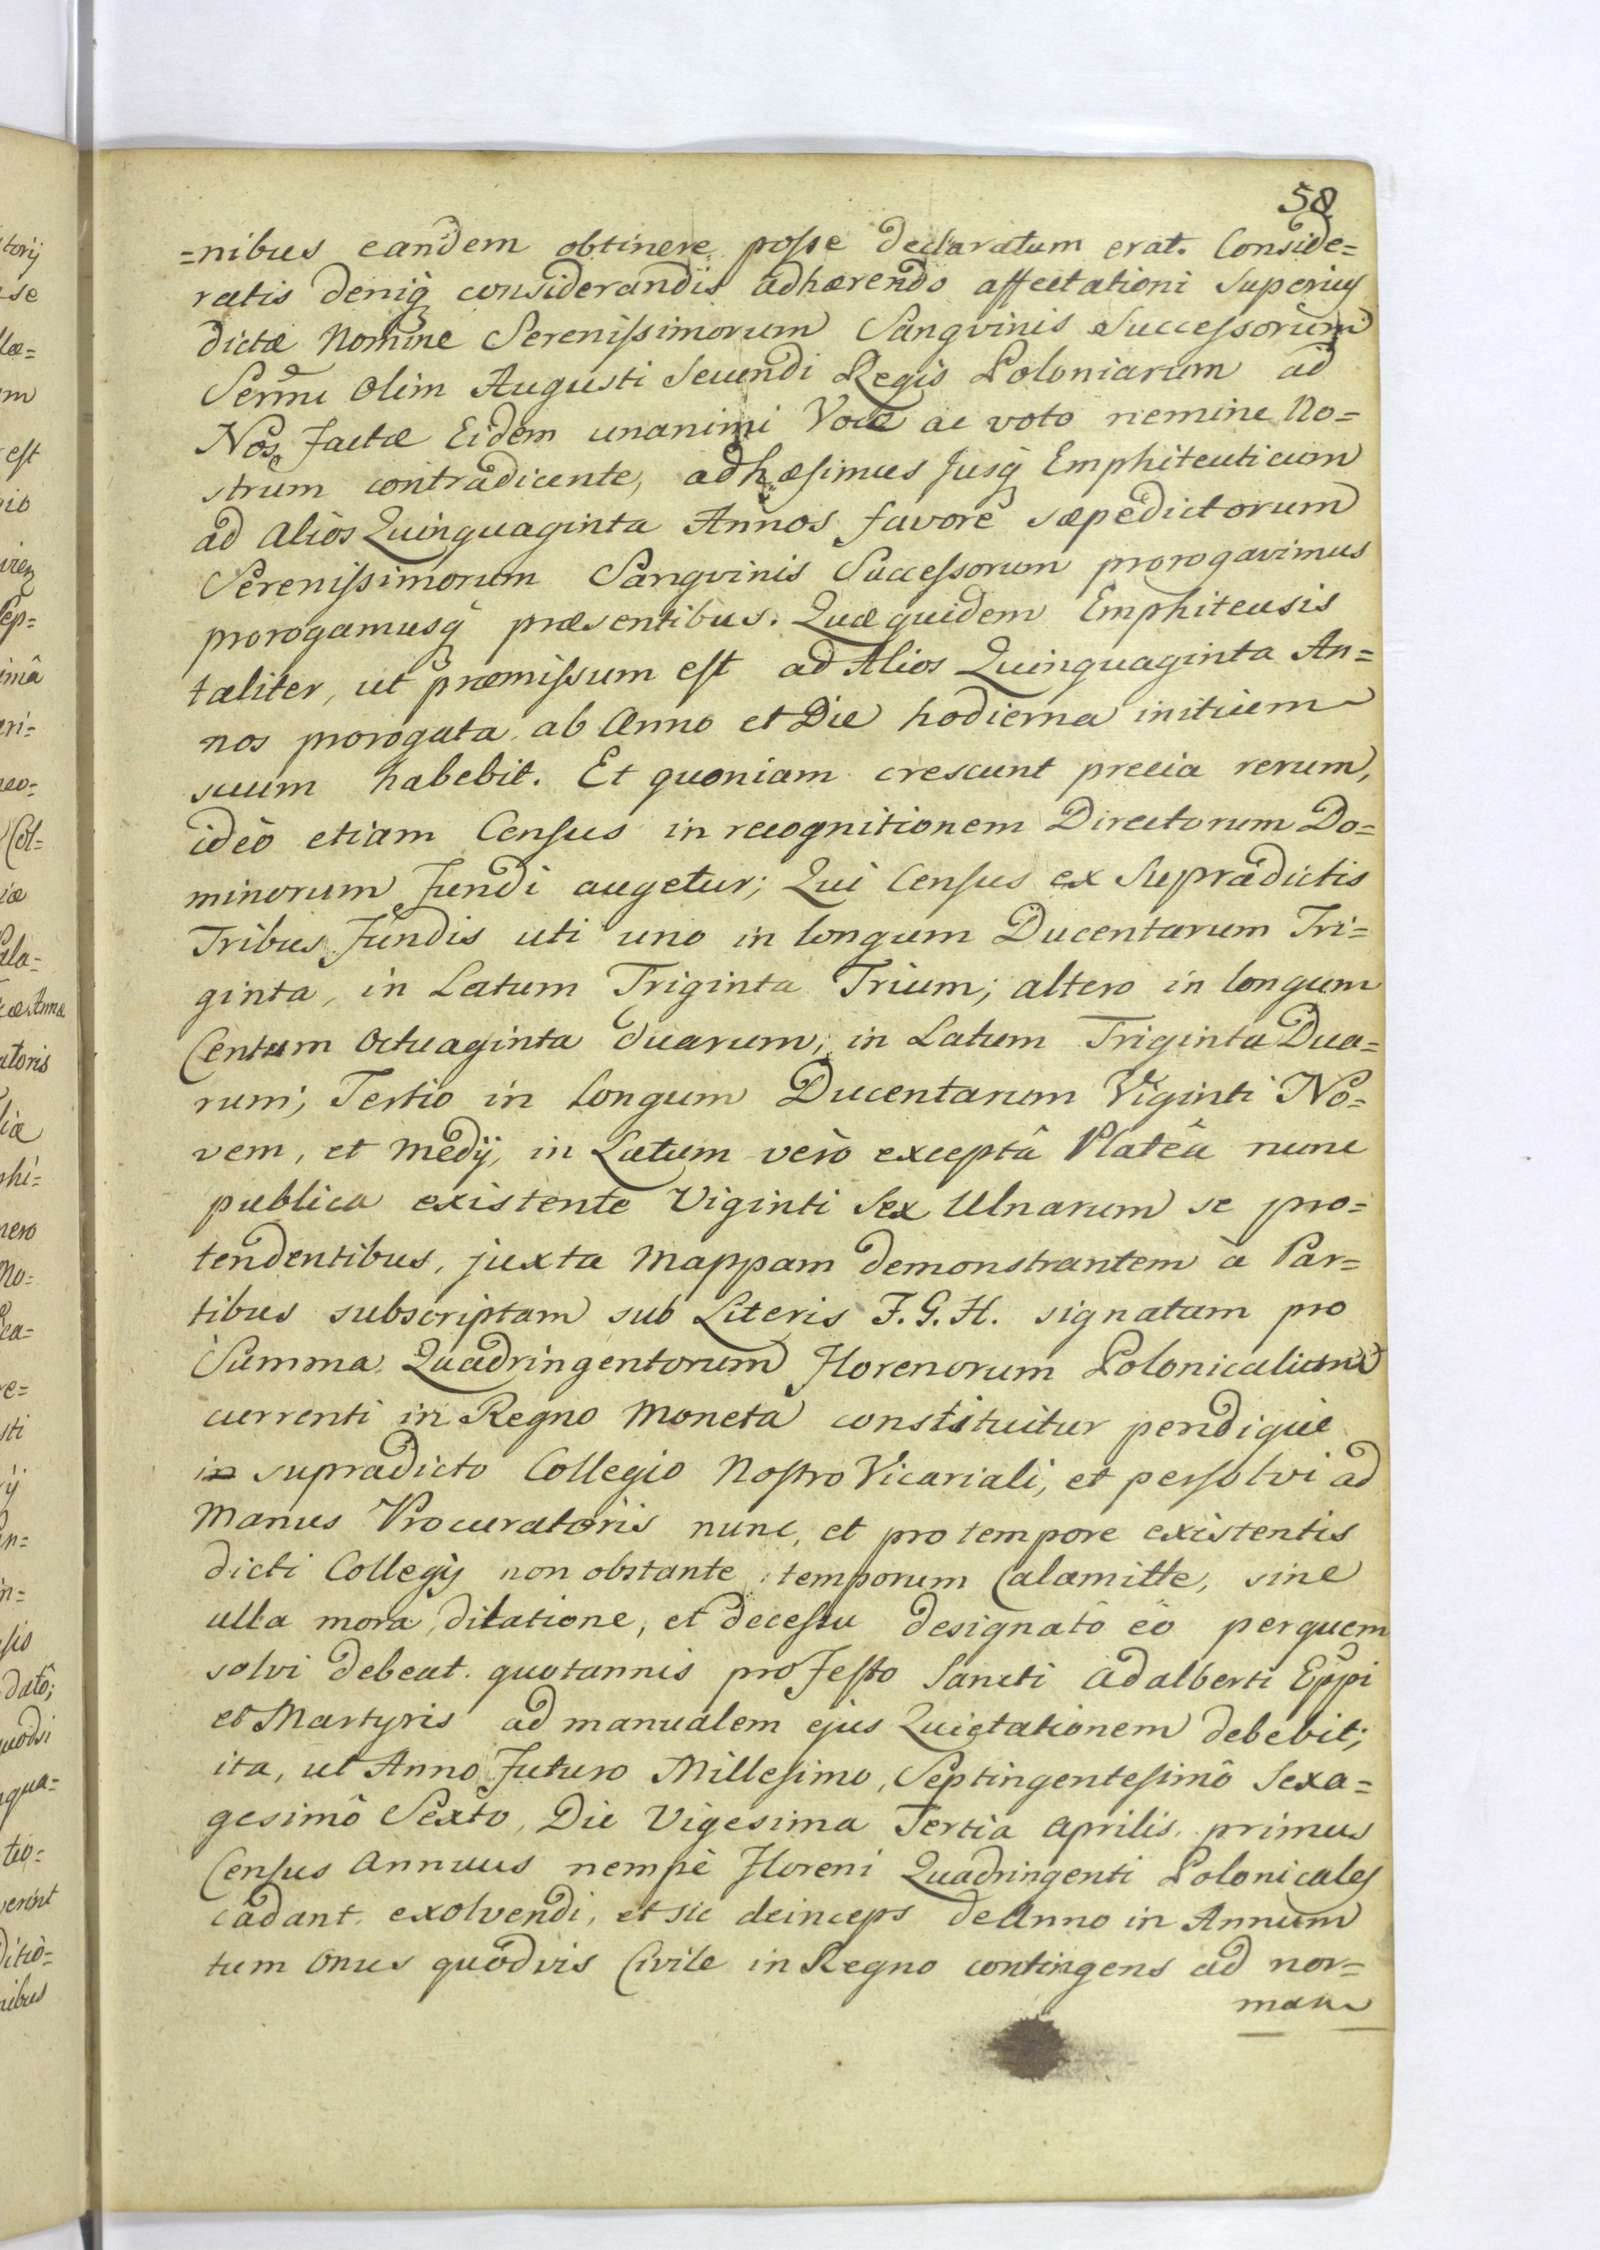 58
=nibus eandem obtinere posse declaratum erat. Conside=
ratis deniq; considerandis adhærendo affectationi superius
dictæ Nomine Serenissimorum Sangvinis Successorum
Serm̃i olim Augusti Secundi Regis Poloniarum ad
Nos factæ Eidem unanimi Voce ac voto nemine No=
strum contradicente, adhæsimus Jusq; Emphiteuticum
ad alios Quinquaginta Annos favore sæpedictorum
Serenissimorum Sangvinis Successorum prorogavimus
prorogamusq; præsentibus. Quæ quidem Emphiteusis
taliter, ut præmissum est ad Alios Quinquaginta An=
nos prorogata ab Anno et Die hodierna initium
suum habebit. Et quoniam crescunt precia rerum,
ideò etiam Census in recognitionem Directorum Do=
minorum Fundi augetur; Qui Census ex Supradictis
Tribus Fundis uti uno in longum Ducentarum Tri=
ginta, in Latum Triginta Trium; altero in longum
Centum Octuaginta duarum; in Latum Triginta Dua=
rum; Tertio in longum Ducentarum Viginti No=
vem, et medÿ, in Latum verò exceptâ Plateâ nunc
publica existente Viginti Sex Ulnarum se pro=
tendentibus, juxta Mappam demonstrantem à Par=
tibus subscriptam sub Literis F. G. H. signatam pro
Summa Quadringentorum Florenorum Polonicalium
currenti in Regno Moneta constituitur pendique
in supradicto Collegio Nostro Vicariali, et persolvi ad
Manus Procuratoris nunc, et pro tempore existentis
dicti Collegÿ non obstante temporum Calamitte, sine
ulla mora, dilatione, et decessu designatô eô per quem
solvi debeat quotannis pro Festo Sancti Adalberti Eppi
et Martyris ad manualem ejus Quietationem debebit;
ita, ut Anno Futuro Millesimo, Septingentesimô Sexa=
gesimô Sexto, Die Vigesima Tertia Aprilis primus
Census Annuus nempè Floreni Quadringenti Polonicales
cadant exolvendi, et sic deinceps de Anno in Annum
tum Onus quodvis Civile in Regno contingens ad nor=
mam